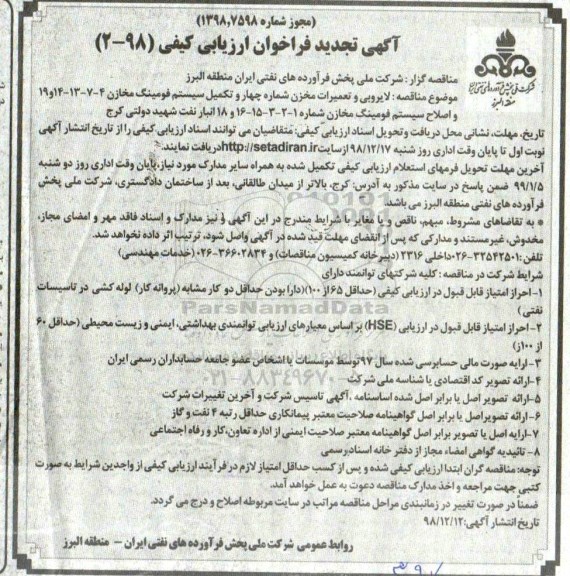 (مجوز شماره ۱۳۹۸,۷۵۹۸)
آگهی تجدید فراخوان ارزیابی کیفی (۹۸-۲)
شرکت ملی پخش فرآورده های نفتی ایران
منطقه البرز
مناقصه گزار : شرکت ملی پخش فرآورده های نفتی ایران منطقه البرز
موضوع مناقصه : لایروبی و تعمیرات مخزن شماره چهار و تکمیل سیستم فومینگ مخازن ۴-۷-۱۳-۱۴و۱۹
و اصلاح سیستم فومینگ مخازن شماره ۱-۲-۳-۱۵-۱۶ و ۱۸ انبار نفت شهید دولتی کرج
تاریخ، مهلت، نشانی محل دریافت وتحویل اسناد ارزیابی کیفی: متقاضیان می توانند اسناد ارزیابی کیفی را از تاریخ انتشار آگهی
نوبت اول تا پایان وقت اداری روز شنبه ۹۸/۱۲/۱۷ ازسایت http://setadiran.ir دریافت نمایند.
آخرین مهلت تحویل فرمهای استعلام ارزیابی کیفی تکمیل شده به همراه سایر مدارک مورد نیاز،پایان وقت اداری روز دو شنبه
۹۹/۱/۵ ضمن پاسخ در سایت مذکور به آدرس: کرج، بالاتر از میدان طالقانی، بعد از ساختمان دادگستری، شرکت ملی پخش
فرآورده های نفتی منطقه البرز می باشد.
* به تقاضاهای مشروط، مبهم، ناقص و یا مغایر با شرایط مندرج در این آگهی و نیز مدارک و اسناد فاقد مهر و امضای مجاز،
مخدوش، غیرمستند و مدارکی که پس از انقضای مهلت قید شده در آگهی واصل شود، ترتیب اثر داده نخواهد شد.
تلفن: ۳۲۵۴۲۵۰۱-۰۲۶داخلی ۲۳۱۶ (دبیرخانه کمیسیون مناقصات) و ۳۶۶۰۲۸۳۴-۰۲۶ (خدمات مهندسی)
شرایط شرکت در مناقصه : کلیه شرکتهای توانمند دارای
۱- احراز امتیاز قابل قبول در ارزیابی کیفی (حداقل ۶۵از ۱۰۰)(دارا بودن حداقل دو کار مشابه (پروانه کار) لوله کشی در تاسیسات
نفتی )
۲- احراز امتیاز قابل قبول در ارزیابی (HSE) بر اساس معیارهای ارزیابی توانمندی بهداشتی، ایمنی و زیست محیطی (حداقل ۶۰
از ۱۰۰)
۳- ارایه صورت مالی حسابرسی شده سال ۹۷توسط موسسات یا اشخاص عضو جامعه حسابداران رسمی ایران
۴-ارائه تصویر کد اقتصادی یا شناسه ملی شرکت
۵-ارائه تصویر اصل یا برابر اصل شده اساسنامه ،آگهی تاسیس شرکت و آخرین تغییرات شرکت
۶- ارائه تصویراصل یا برابر اصل گواهینامه صلاحیت معتبر پیمانکاری حداقل رتبه ۴ نفت و گاز
۷-ارایه اصل یا تصویر برابر اصل گواهینامه معتبر صلاحیت ایمنی از اداره تعاون،کار و رفاه اجتماعی
۸- تائیدیه گواهی امضاء مجاز از دفتر خانه اسنادرسمی
توجه: مناقصه گران ابتدا ارزیابی کیفی شده و پس از کسب حداقل امتیاز لازم در فرآیند ارزیابی کیفی از واجدین شرایط به صورت
کتبی جهت مراجعه و اخذ مدارک مناقصه دعوت به عمل خواهد آمد.
ضمنا در صورت تغییر در زمانبندی مراحل مناقصه مراتب در سایت مربوطه اصلاح و درج می گردد.
تاریخ انتشار آگهی: ۹۸/۱۲/۱۲
روابط عمومی شرکت ملی پخش فرآورده های نفتی ایران - منطقه البرز
ParsNamadData
۰۲۱-۸۸۳۴۹۶۷۰